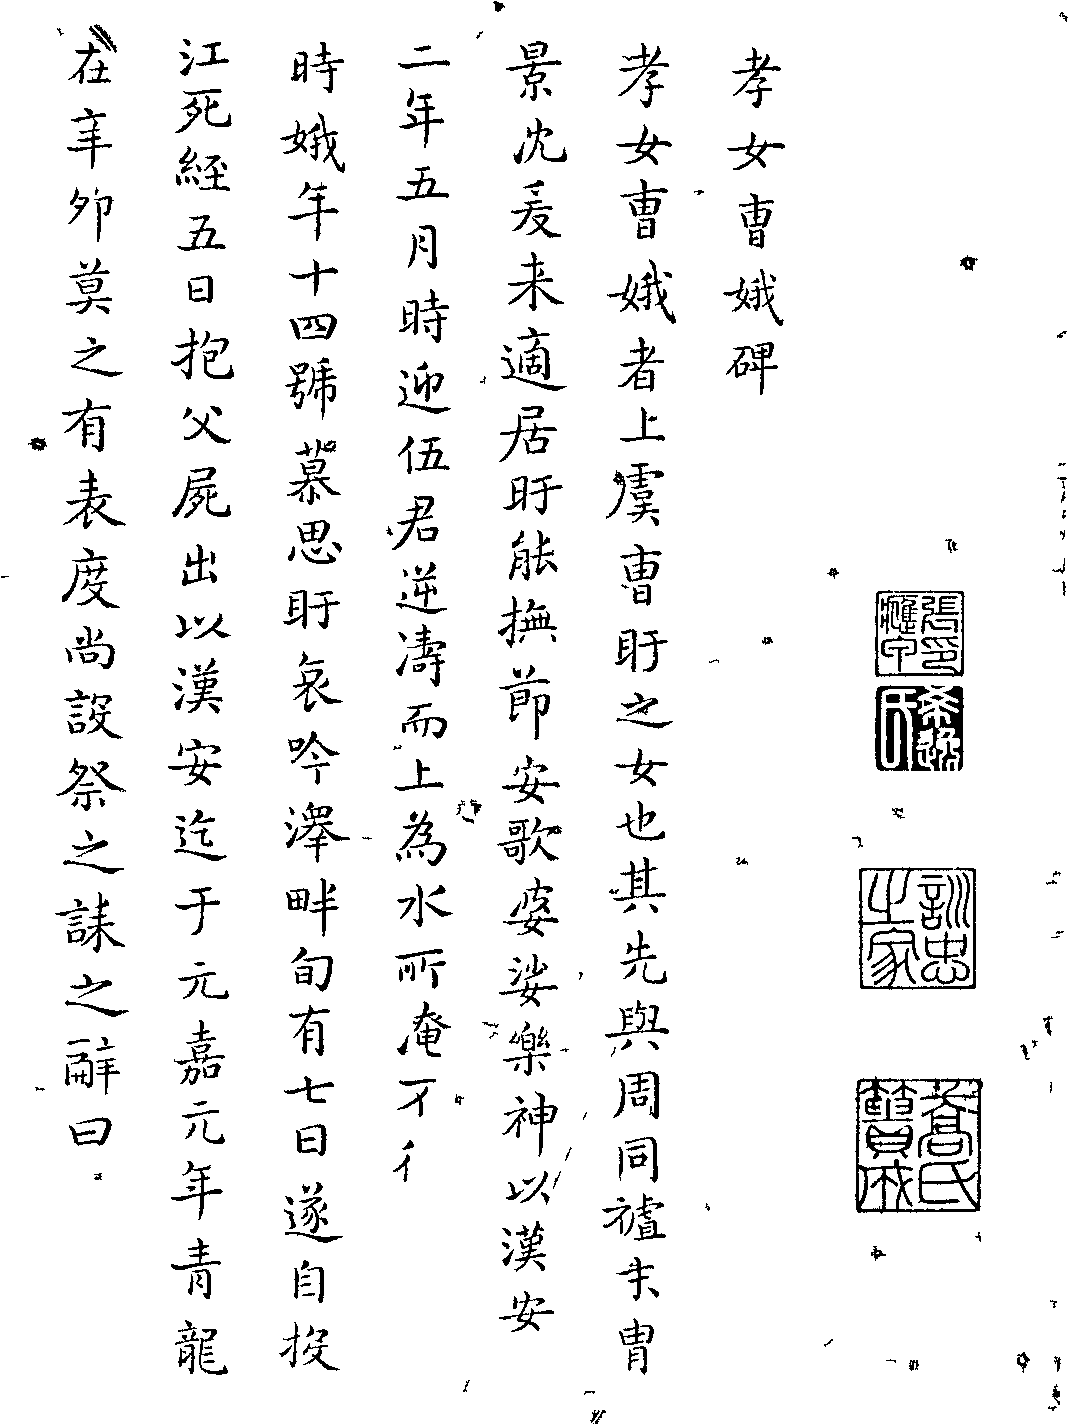 孝女曹娥碑
孝女曹娥者上虞曹盱之女也其先與周同禩末胄
景沈爰来適居盱能撫節安歌婆娑樂神以漢安
二年五月時迎伍君逆濤而上為水所淹不
時娥年十四號慕思盱哀吟澤畔旬有七日遂自投
江死經五日抱父屍出以漢安迄于元嘉元年青龍
在辛卯莫之有表度尚設祭之誄之辭曰
訓忠之家